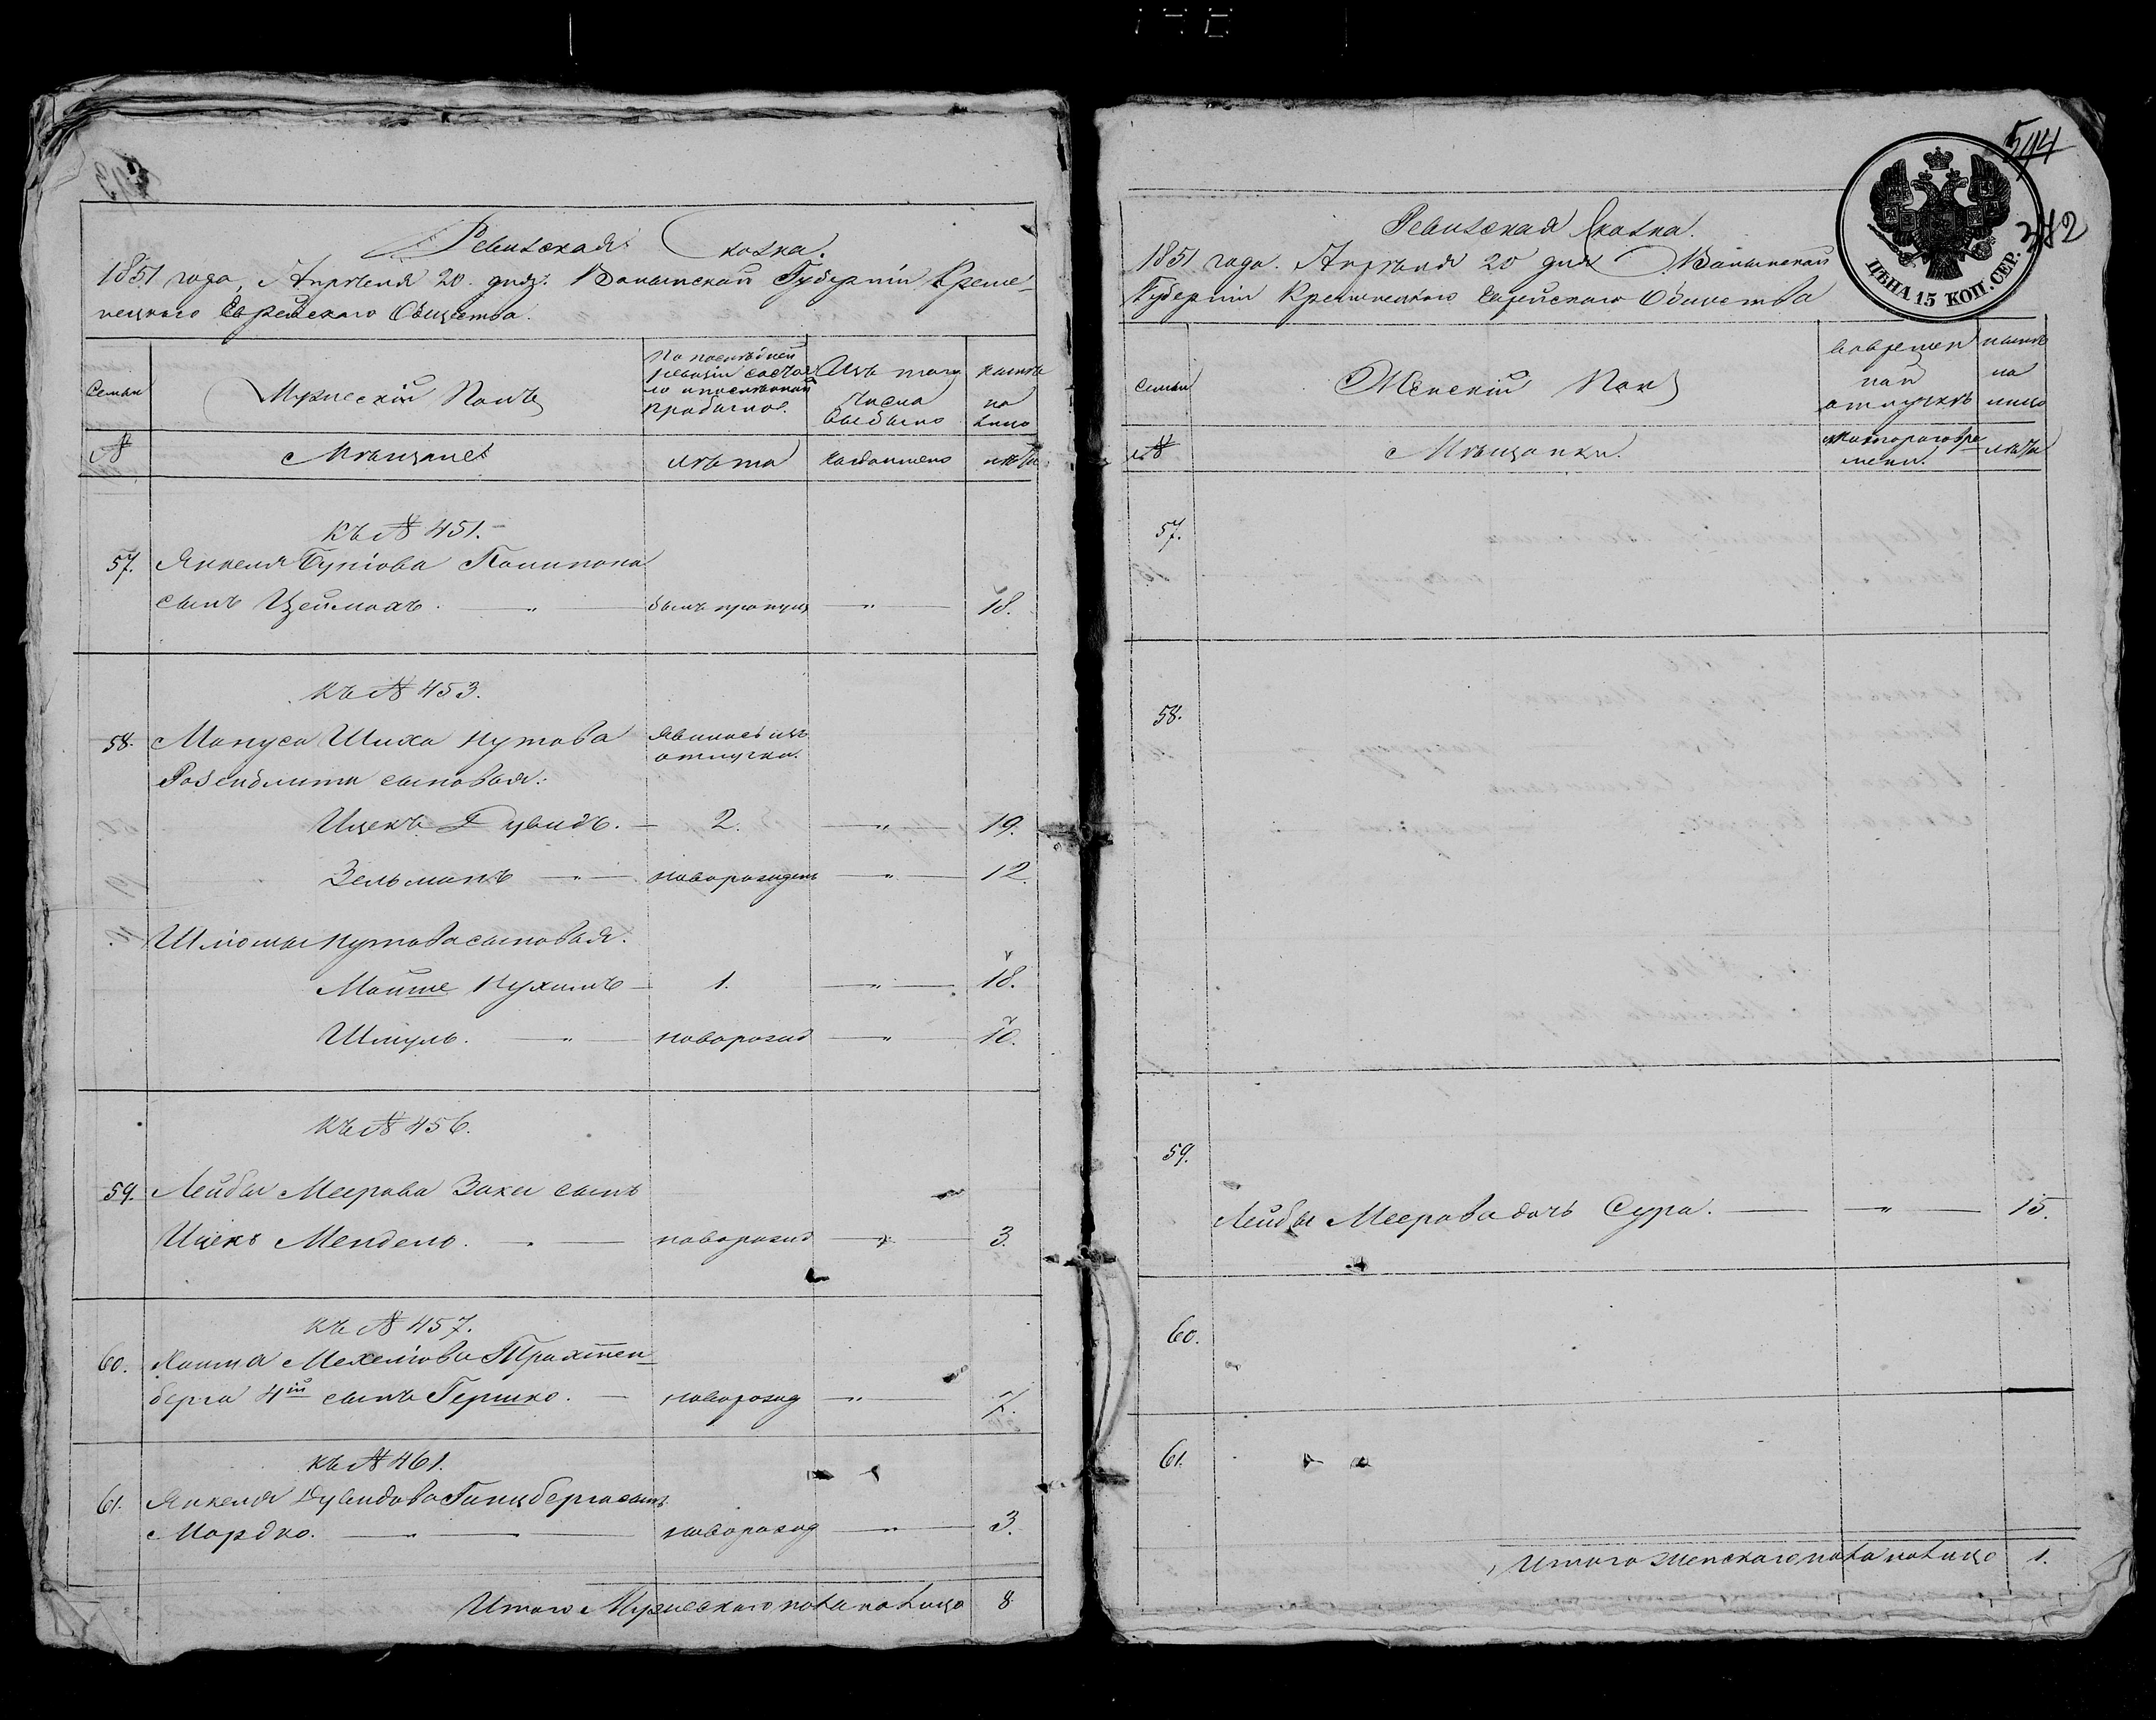 Ревизская Сказка.
1851 года, Апреля 20. дня. Волынской Губернiи Креме-
нецкаго Еврейскаго Общества.
Семьи
Мужескiй Полъ
По последней ревизiи состояло и после оной прибыло.
Изъ того числа выбыло
ныне на лицо
№
Мещане
лета
когда именно
лета
Къ № 451.
57. Янкеля
сынъ был пропущ " 18.
Къ № 453.
58. Мануса Шиха Нутова явился изъ
отлучки.
Розенблита сыновья:
Ицекъ Дувидъ. 2. " 19.
Зельманъ " новорожден " 12.
Шлiомы Нутова сыновья.
Мошше Нухимъ 1. " 18.
Шмуль. " новорожд " 10.
Къ № 456.
59. Лейбы Меерова Закса сынъ
Ицекъ Мендель. " новорожд " 3.
Къ № 457.
60. Мехелiова Трахтен-
берга 4й сынъ Гершко. новорожд " 7.
Къ № 461.
61. Янкеля Дувидова Гинцберга сынъ
Мордко. " новорожд " 3.
Итого Мужескаго пола на лицо 8
594
342
ЦѢНА 15 КОП. СЕР.
Ревизская Сказка.
1851 года. Апреля 20 дня Волынской
Губернiи Кременецкаго Еврейскаго Общества
Семьи
Женскiй Полъ
во времен
ной
отлучке
ныне
на
лицо
№
Мещанки.
съ котораго вре
мени.
лета
57.
58.
59.
Лейбы Меерова дочь Сура. " 15.
60.
61.
Итого женскаго пола на лицо 1.